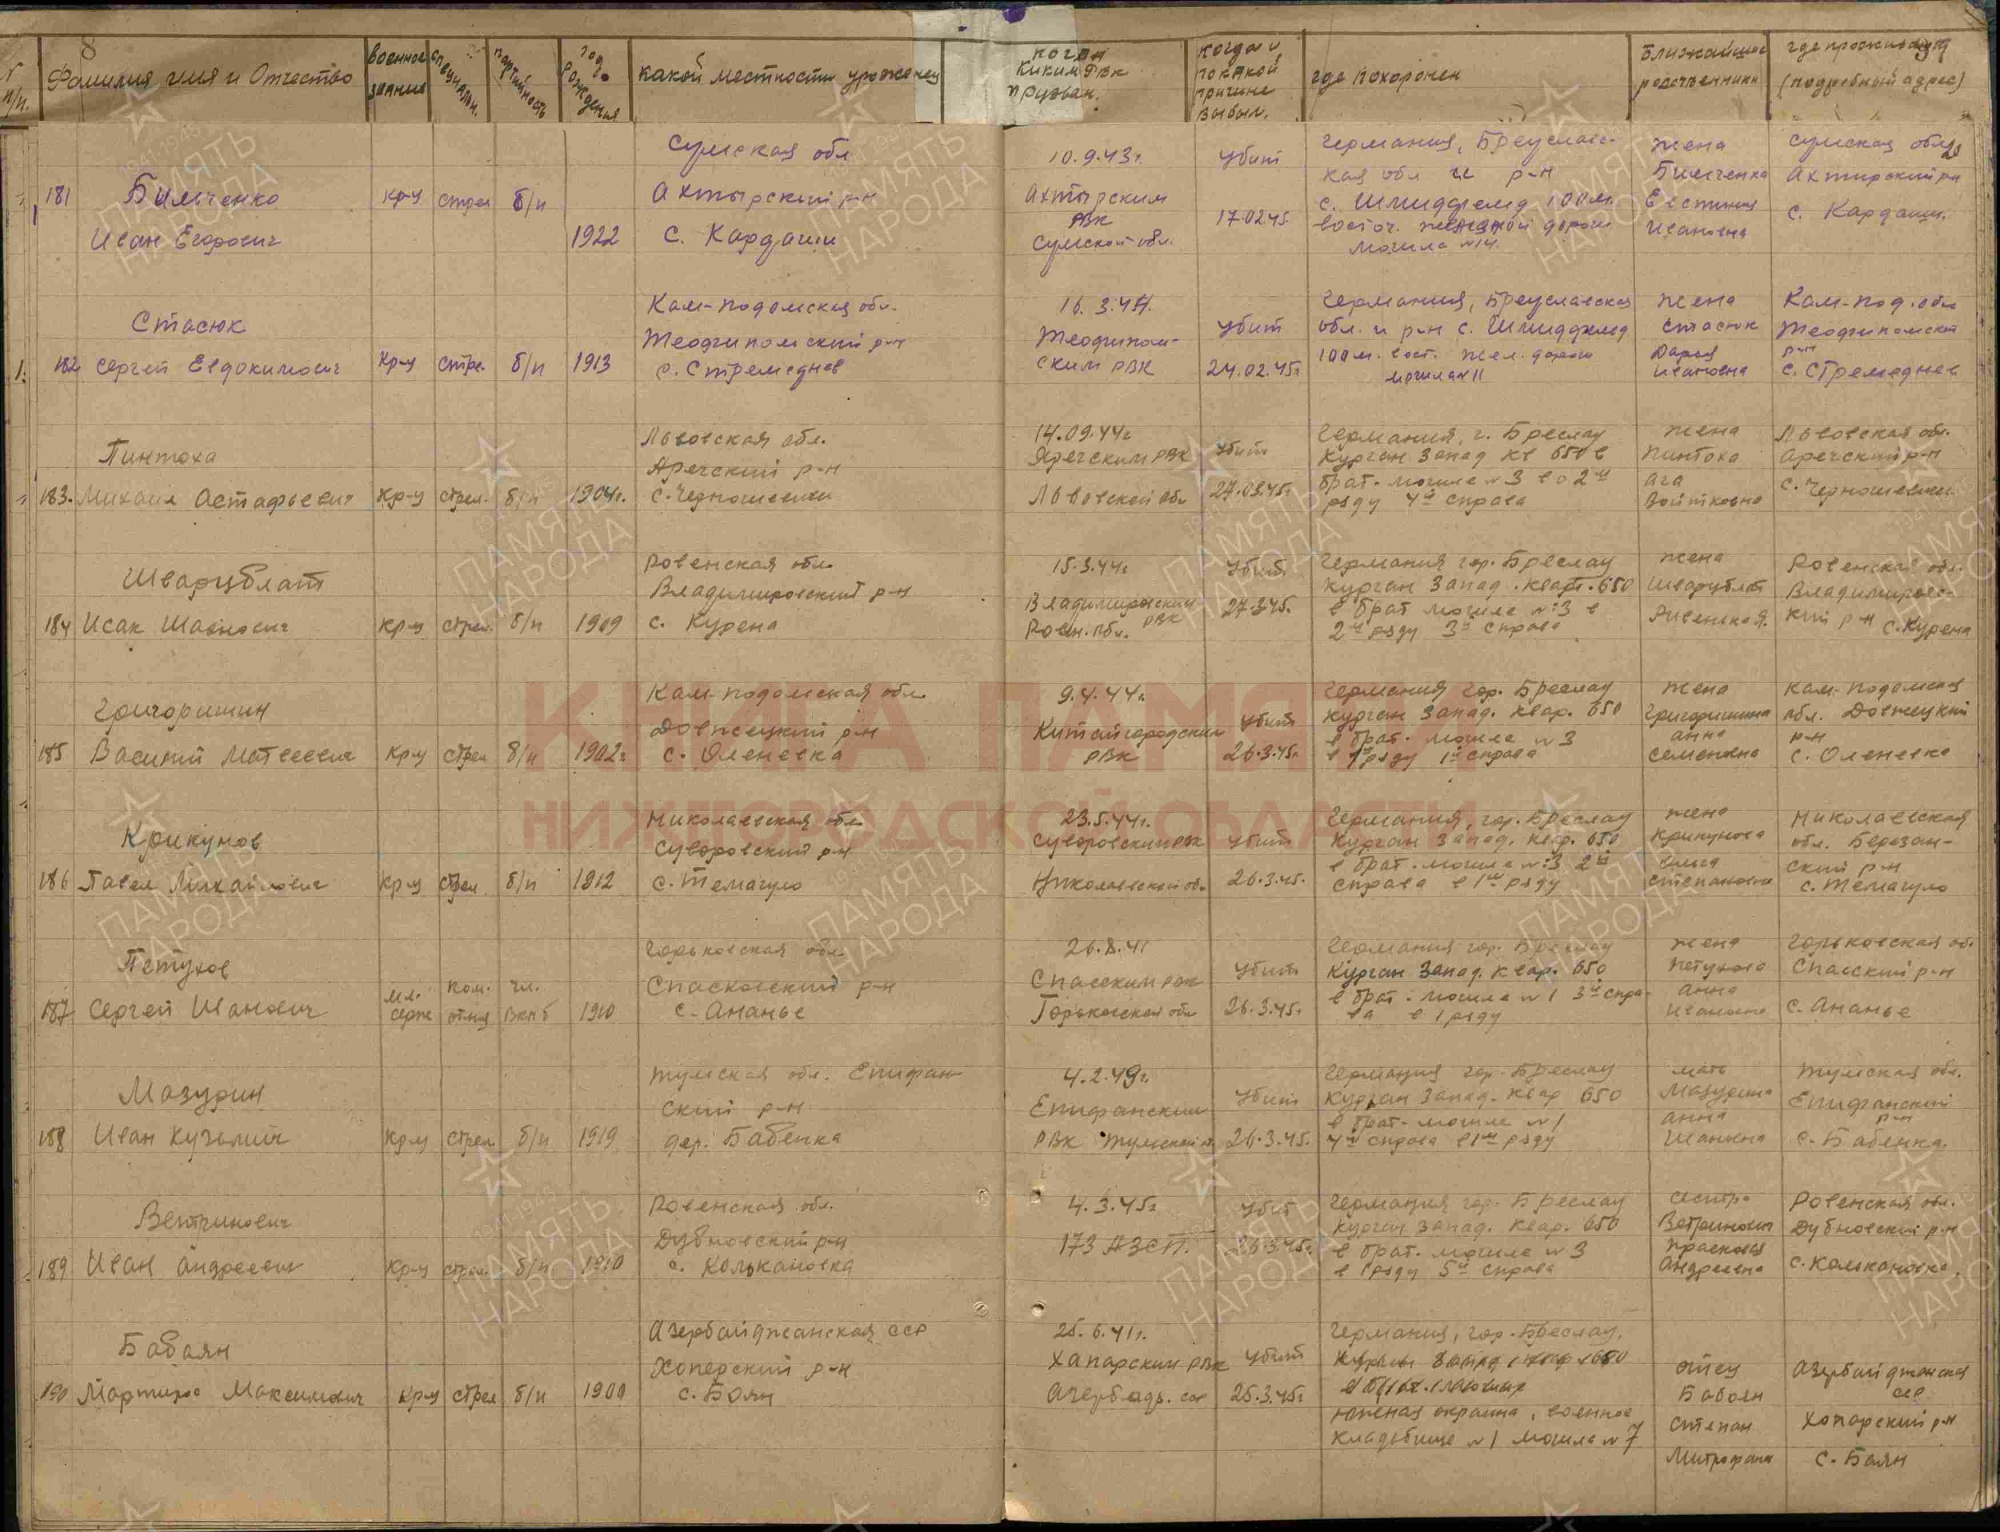 8
N п/п.
Фамилия имя и Отчество
военное звание
специальн.
партийность
год рождения
какой местности уроженец
когда и каким РВК призван.
когда и по какой причине выбыл.
где похоронен
Ближайшие родственники
где проживают (подробный адрес)
181
Бильченко
Иван Егорович
кр-ц стрел б/п
1922
Сумская обл
Ахтырский р-н
с. Кардаши
10.9.43г.
Ахтырским
РВК
Сумской обл.
убит
17.02.45
Германия, Бреславс-
кая обл и р-н
с. Шмидфельд 100 м.
восточ. железной дороги
могила N14.
жена
Бильченко
Ивановна
Сумская обл
Ахтырский рн
с. Кардаши.
182
Стасюк
Сергей Евдокимович
кр-ц стрел. б/п 1913
Кам-Подольская обл.
Теофипольский р-н
16. 3.44.
Теофиполь-
ским РВК
убит
24.02.45г
Германия, Бреславская
обл. и р-н с. Шмидфельд
100 м. вост. жел. дороги
могила N11
жена
Стасюк
Дарья
Ивановна
Кам-Под. обл
Теофипольский
р-н
183.
Пинтоха
Михаил Астафьевич
кр-ц стрел. б/п 1904г.
Львовская обл.
Яречский р-н
14.09.44г
Яречским РВК
Львовской обл
убит
27.03.45г
Германия, г. Бреслау
Курган Запад кв 650 в
брат. могиле N3 во 2ом
ряду 4й справа
жена
Пинтоха
Войтковна
Львовская обл.
Яречский р-н
184
Шварцблат
Исак
кр-ц стрел. б/п 1909
Ровенская обл
Владимировский р-н
с. Курена
15.3.44г
Владимирским
РВК
Ровен. обл.
убит
27.3.45г.
Германия гор. Бреслау
Курган Запад. кварт. 650
в брат могиле N:3 в
2ом ряду 3й справа
жена
Шварцблат
Ровенская обл.
Владимировс-
кий р-н с. Курена
185
Григоришин
Василий Матвеевич
кр-ц стрел б/п 1902г
Кам-Подольская обл.
Довжецкий р-н
с. Оленевка
9.4.44г.
Китайгородским
РВК
убит
26.3.45г.
Германия гор. Бреслау
Курган Запад. квар. 650
в брат. могиле N3
в 1м ряду 1й справа
жена
Григоришина
Анна
Семеновна
Кам-Подольская
обл. Довжецкий
р-н
с. Оленевка
186
Крикунов
Павел Михайлович
кр-ц стрел. б/п 1912
Николаевская обл.
Суворовский р-н
с. Темагуло
23.5.44г.
Суворовским РВК
Николаевской об.
убит
26.3.45г.
Германия, гор. Бреслау
Курган Запад. квар. 650
в брат. могиле N:3 2й
справа в 1ом ряду
жена
Крикунова
Степановна
Николаевская
обл. Березан-
ский р-н
с. Темагуло
187
Петухов
Сергей Иванович
мл. серж
ком. отд
чл. ВКПб
1910
Горьковская обл
Спасковский р-н
с. Ананье
26.8.41
Спасским РВК
Горьковская обл
убит
26.3.45г.
Германия гор. Бреслау
Курган Запад. квар. 650
в брат. могиле N1 3й спра-
ва в 1 ряду
жена
Петухова
Анна
Ивановна
Горьковская об.
Спасский р-н
с. Ананье
188
Мазурин
Иван Кузьмич
кр-ц стрел. б/п 1919
Тульская обл. Епифан
ский р-н
дер. Бабенка
4.2.49г.
Епифанским
РВК Тульской о.
убит
26.3.45г.
Германия гор. Бреслау
Курган Запад. квар 650
в брат. могиле N1
4й справа в 1ом ряду
мать
Мазурина
Анна
Ивановна
Тульская обл.
Епифанский
р-н
с. Бабенка.
189
Ветринович
Иван Андреевич
кр-ц стрел. б/п 1910
Ровенская обл.
Дубновский р-н
с. Колькановка
4.3.45г
173 АЗСП.
убит
26.3.45г.
Германия гор. Бреслау
Курган Запад. квар. 650
в брат. могиле N3
в 1 ряду 5й справа
сестра
Ветринович
Прасковья
Андреевна
Ровенская обл.
Дубновский р-н
с. Колькановка.
190
Бабаян
Мартирос Максимович
кр-ц стрел б/п 1900
Азербайджанская ССР
Хоперский р-н
с. Боян
25.6.41г.
Хапарским РВК
Азербадж. сср
убит
25.3.45г
Германия, гор. Бреслау,
Курган Запад. квар. 650
в брат. могиле
южная окраина, военное
кладбище N1 могила N7
отец
Бабоян
Степан
Митрофана
Азербайджанская
сср
Хопарский р-н
с. Боян
КНИГА ПАМЯТИ
НИЖЕГОРОДСКОЙ ОБЛАСТИ
ПАМЯТЬ НАРОДА
1941-1945